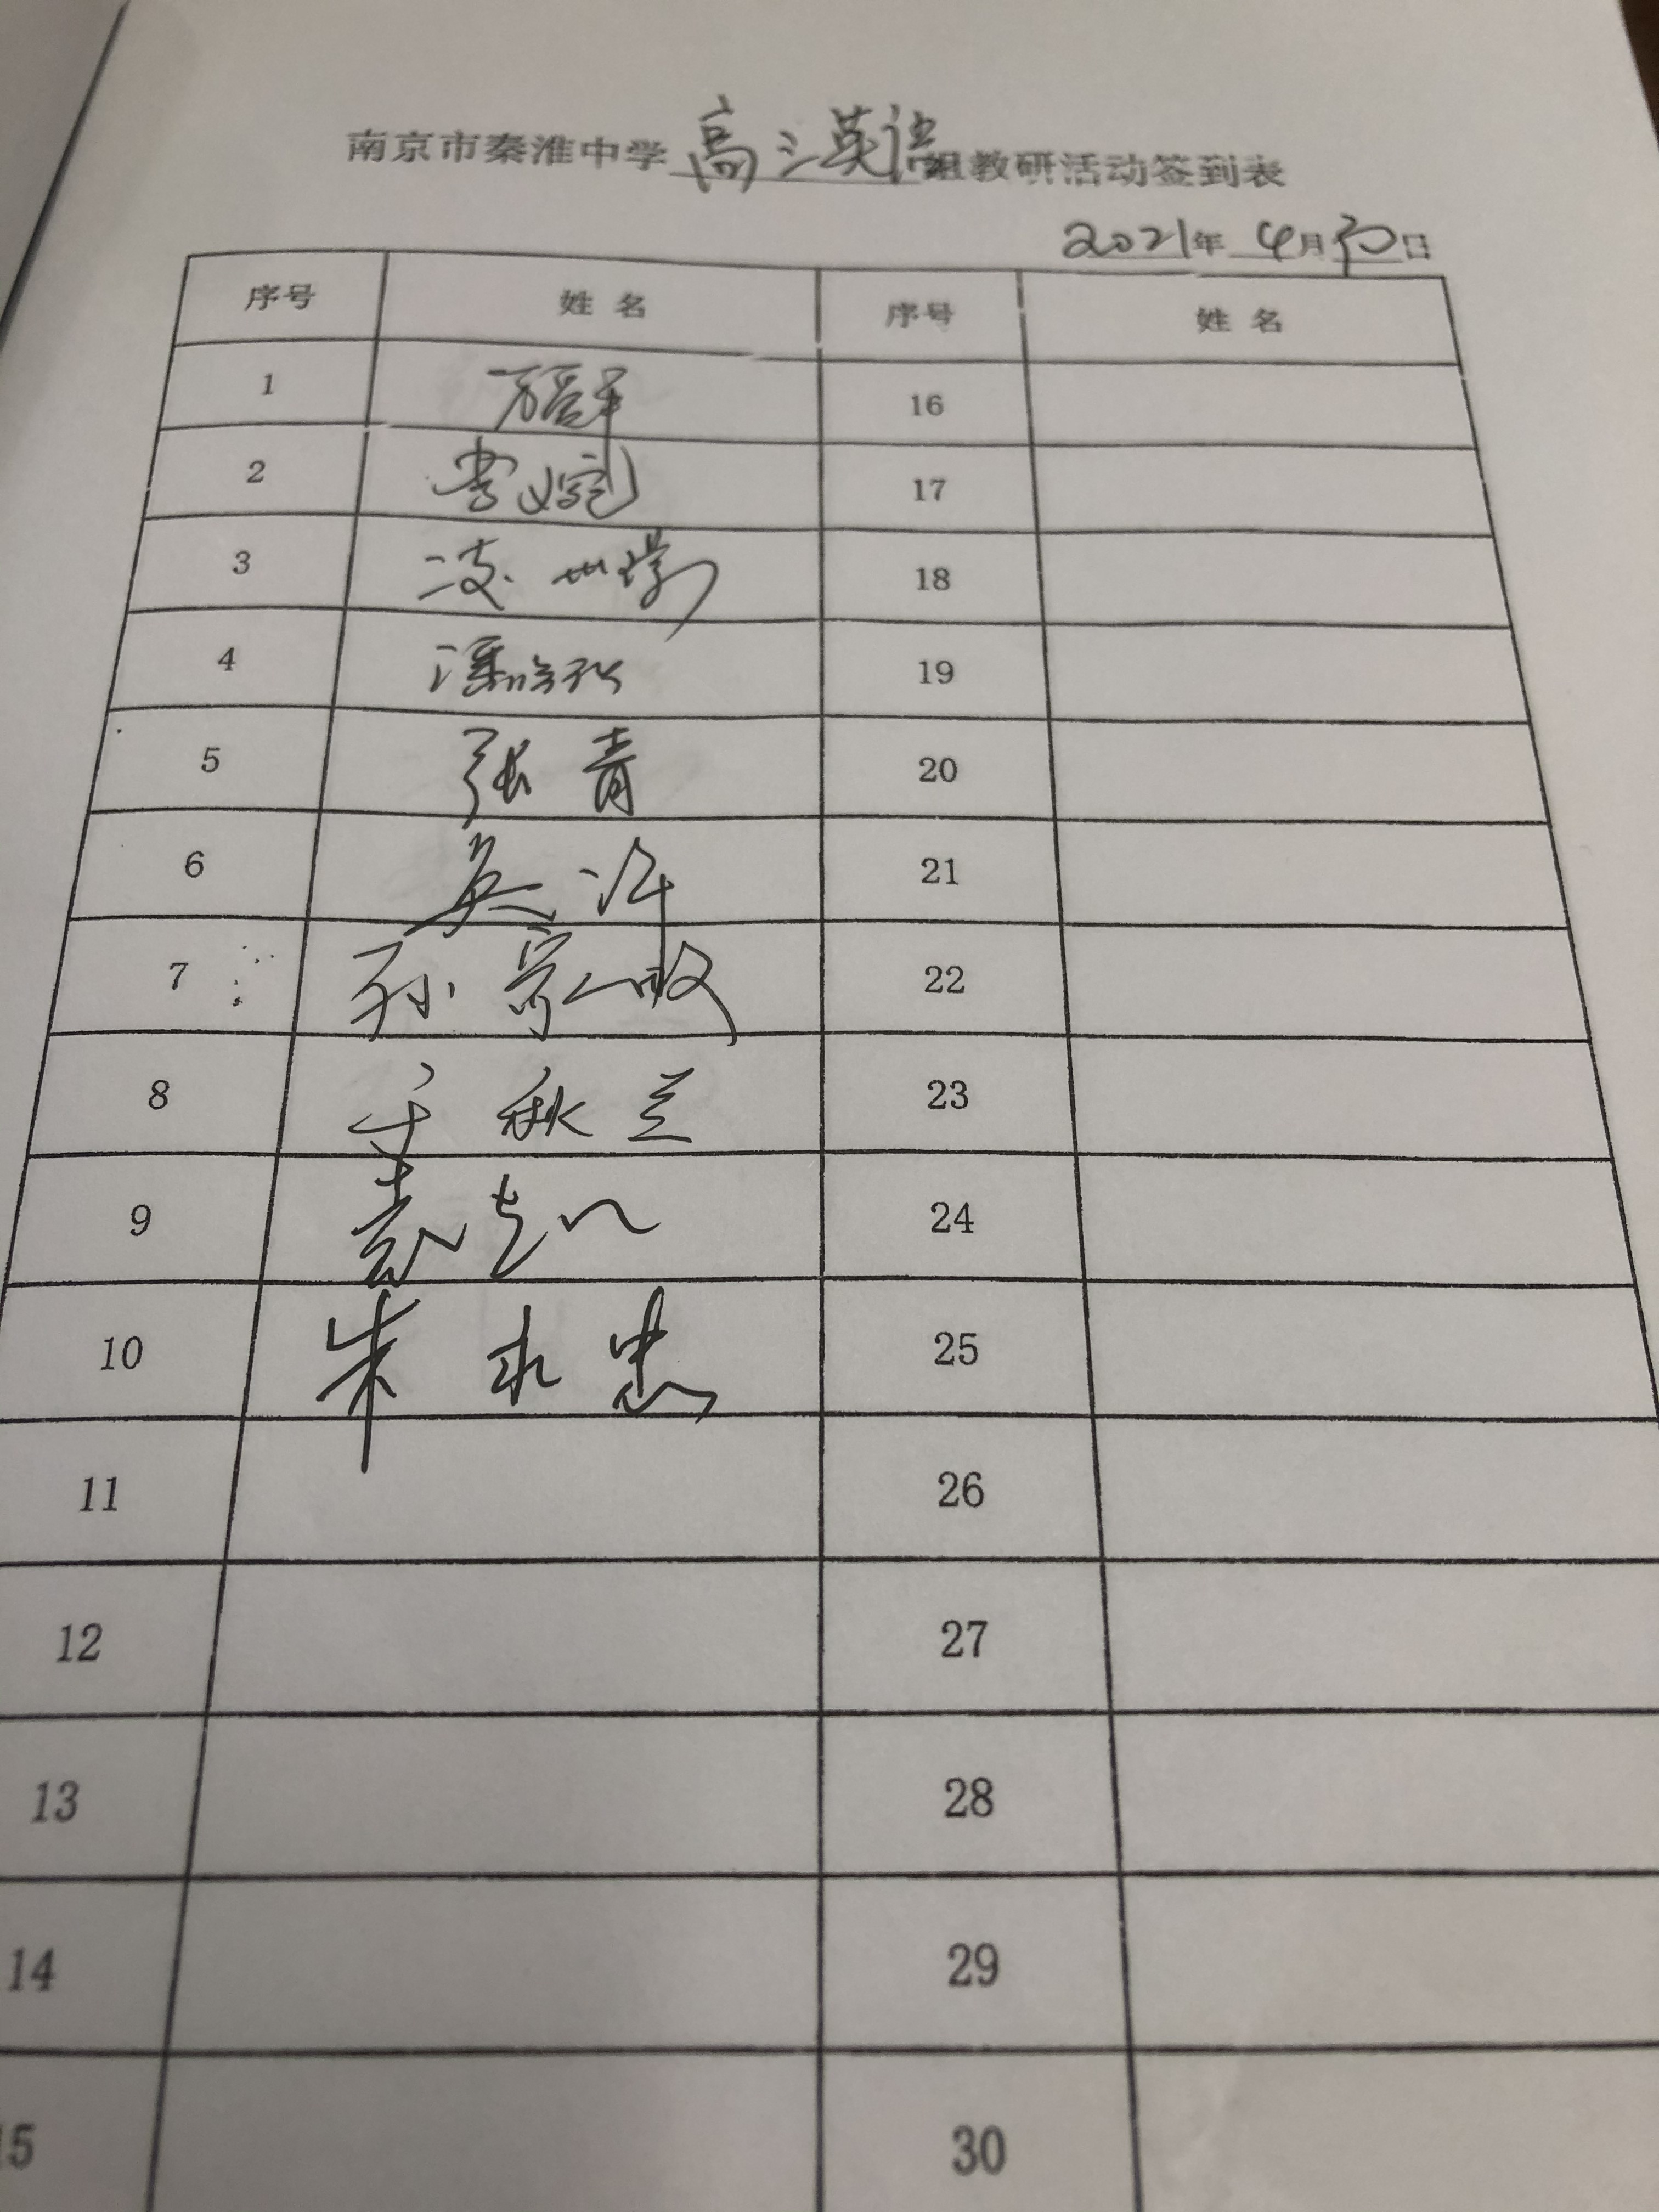 南京市秦淮中学高三英语组教研活动签到表
2021年4月30日
序号 姓名 序号 姓名
1 16
2 李婉 17
3 凌 18
4 潘 19
5 张青 20
6 吴 21
7 孙 敏 22
8 于秋兰 23
9 袁 24
10 朱永忠 25
11 26
12 27
13 28
14 29
15 30